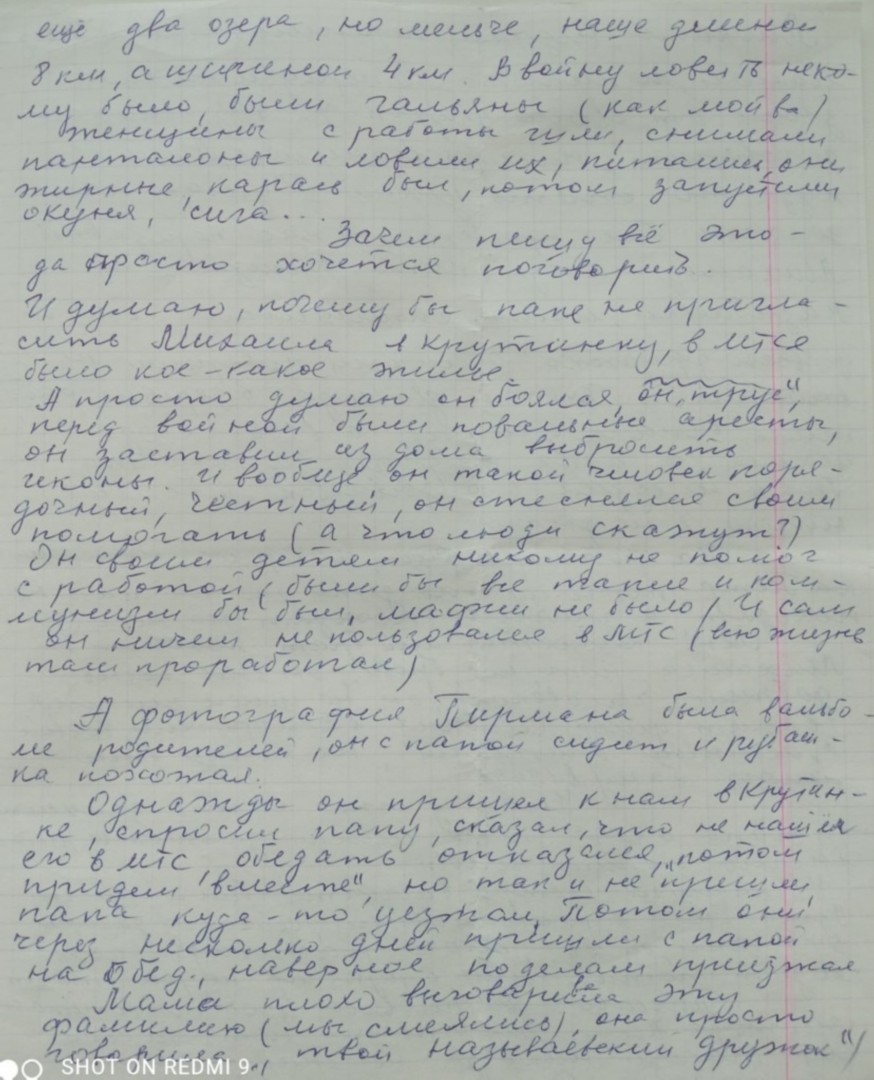 ещё два озера, но меньче, наше длиной
8 км, а шириной 4 км. В войну ловить неко-
му было, были гальяны (как мойва)
женщины с работы шли, снимали
панталоны и ловили их, питались, они
жирные, карась был, потом запустили
окуня, сига...
Зачем пишу всё это -
да просто хочется поговорить.
И думаю, почему бы папе не пригла-
сить Михаила в Крутинку, в МТСе
было кое-какое жильё
А просто думаю он боялся, он "трус",
перед войной были повальные аресты,
он заставил из дома выбросить
иконы. И вообще он такой человек поря-
дочный, честный, он стеснялся своим
помогать (а что люди скажут?)
Он своим детям никому не помог
с работой (были бы все такие и ком-
мунизм бы был, мафии не было) И сам
он ничем не пользовался в МТС (всю жизнь
там проработал)
А фотография Пирмана была в альбо-
ме родителей, он с папой сидит и рубаш-
ка похожая.
Однажды он пришел к нам в Крутин-
ке, спросил папу, сказал, что не нашёл
его в МТС, обедать отказался, "потом
придем вместе", но так и не пришли
папа куда-то уезжал. Потом они
через несколко дней пришли с папой
на обед., наверное по делам приезжал
Мама плохо выговаривала эту
фамилию (мы смеялись), она просто
говорила, "твой называевский дружок")
SHOT ON REDMI 9